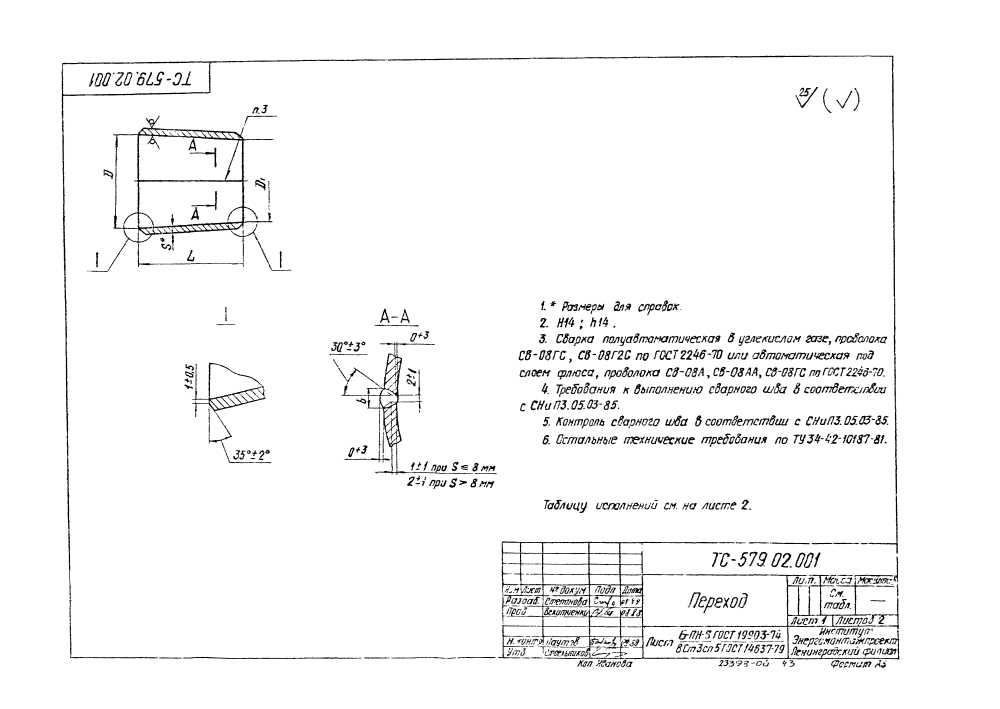 ТС-579.02.001
25/ (√)
п.3
А
А
D
D₁
S*
L
I
I
I
1±0,5
35°±2°
А-А
0+3
30°±3°
2±1
b
0+3
1±1 при S ≤ 8 мм
2±1 при S > 8 мм
1. * Размеры для справок.
2. H14 ; h14 .
3. Сварка полуавтоматическая в углекислом газе, проволока
СВ-08ГС, СВ-08Г2С по ГОСТ 2246-70 или автоматическая под
слоем флюса, проволока СВ-08А, СВ-08АА, СВ-08ГС по ГОСТ 2246-70.
4. Требования к выполнению сварного шва в соответствии
с СНиП3.05.03-85.
5. Контроль сварного шва в соответствии с СНиП3.05.03-85.
6. Остальные технические требования по ТУ34-42-10187-81.
Таблицу исполнений см. на листе 2.
ТС-579.02.001
Переход
Лит. Масса Масштаб
См. табл. —
Лист 1 Листов 2
Изм Лист № докум Подп Дата
Разраб. Степанова
Пров
Н. контр Паутов
Утв
Лист Б-ПН-S ГОСТ 19903-74
ВСт3сп5 ГОСТ 14637-79
Институт
Энергомонтажпроект
Ленинградский филиал
Коп Иванова
23393-06 43
Формат А3